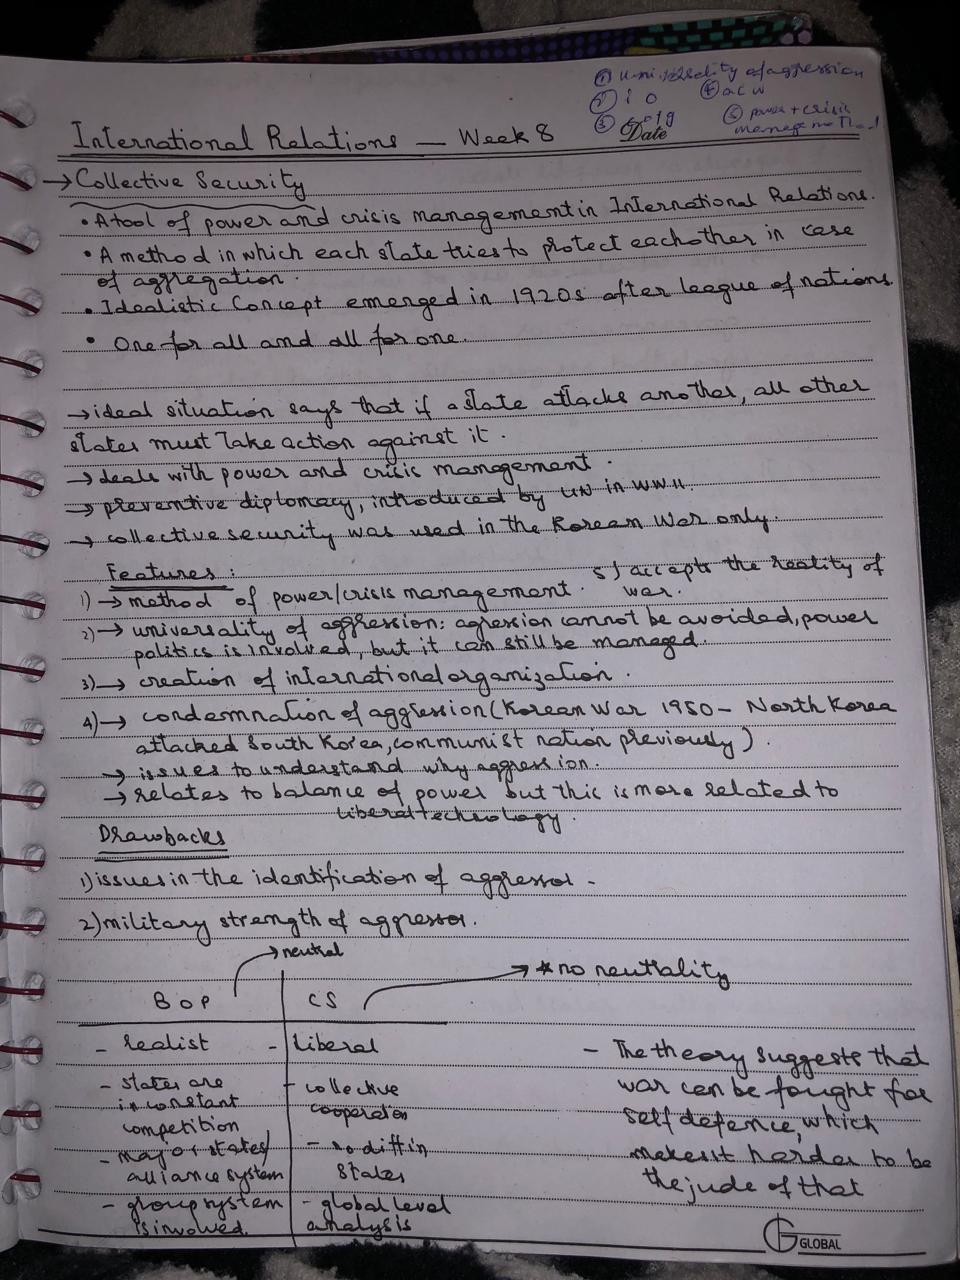 ① universality of aggression
② i o ④ a c w
③ ⑤ power + crisis
Date management
International Relations — Week 8
→ Collective Security
• A tool of power and crisis management in International Relations.
• A method in which each state tries to protect eachother in case
of aggregation.
• Idealistic Concept emerged in 1920s after league of nations.
• One for all and all for one.
→ ideal situation says that if a state attacks another, all other
states must take action against it.
→ deals with power and crisis management.
→ preventive diplomacy, introduced by UN in WWII.
→ collective security was used in the Korean War only.
Features: 5) accepts the reality of
1) → method of power/crisis management. war.
2) → universality of aggression: agression cannot be avoided, power
politics is involved, but it can still be managed.
3) → creation of international organization.
4) → condemnation of aggression (Korean War 1950 - North Korea
attacked South Korea, communist nation previously).
→ issues to understand why aggression.
→ relates to balance of power but this is more related to
liberal technology.
Drawbacks
1) issues in the identification of aggressor -
2) military strength of aggressor.
→ neutral
→ * no neutrality
BOP CS
- realist - liberal
- states are
in constant
competition
- major states/
alliance system
- group system
is involved.
- collective
cooperation
- no diff in
states
- global level
analysis
- The theory suggests that
war can be fought for
self defence, which
makes it harder to be
the jude of that
GLOBAL